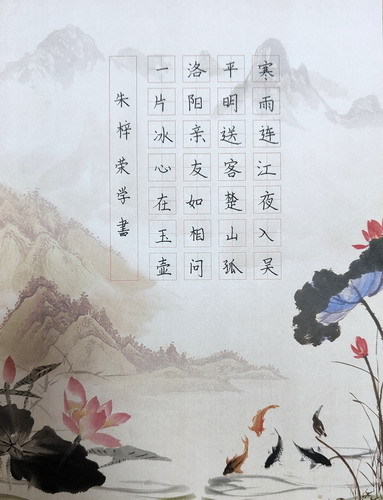 寒雨连江夜入吴
平明送客楚山孤
洛阳亲友如相问
一片冰心在玉壶
朱梓荣学書